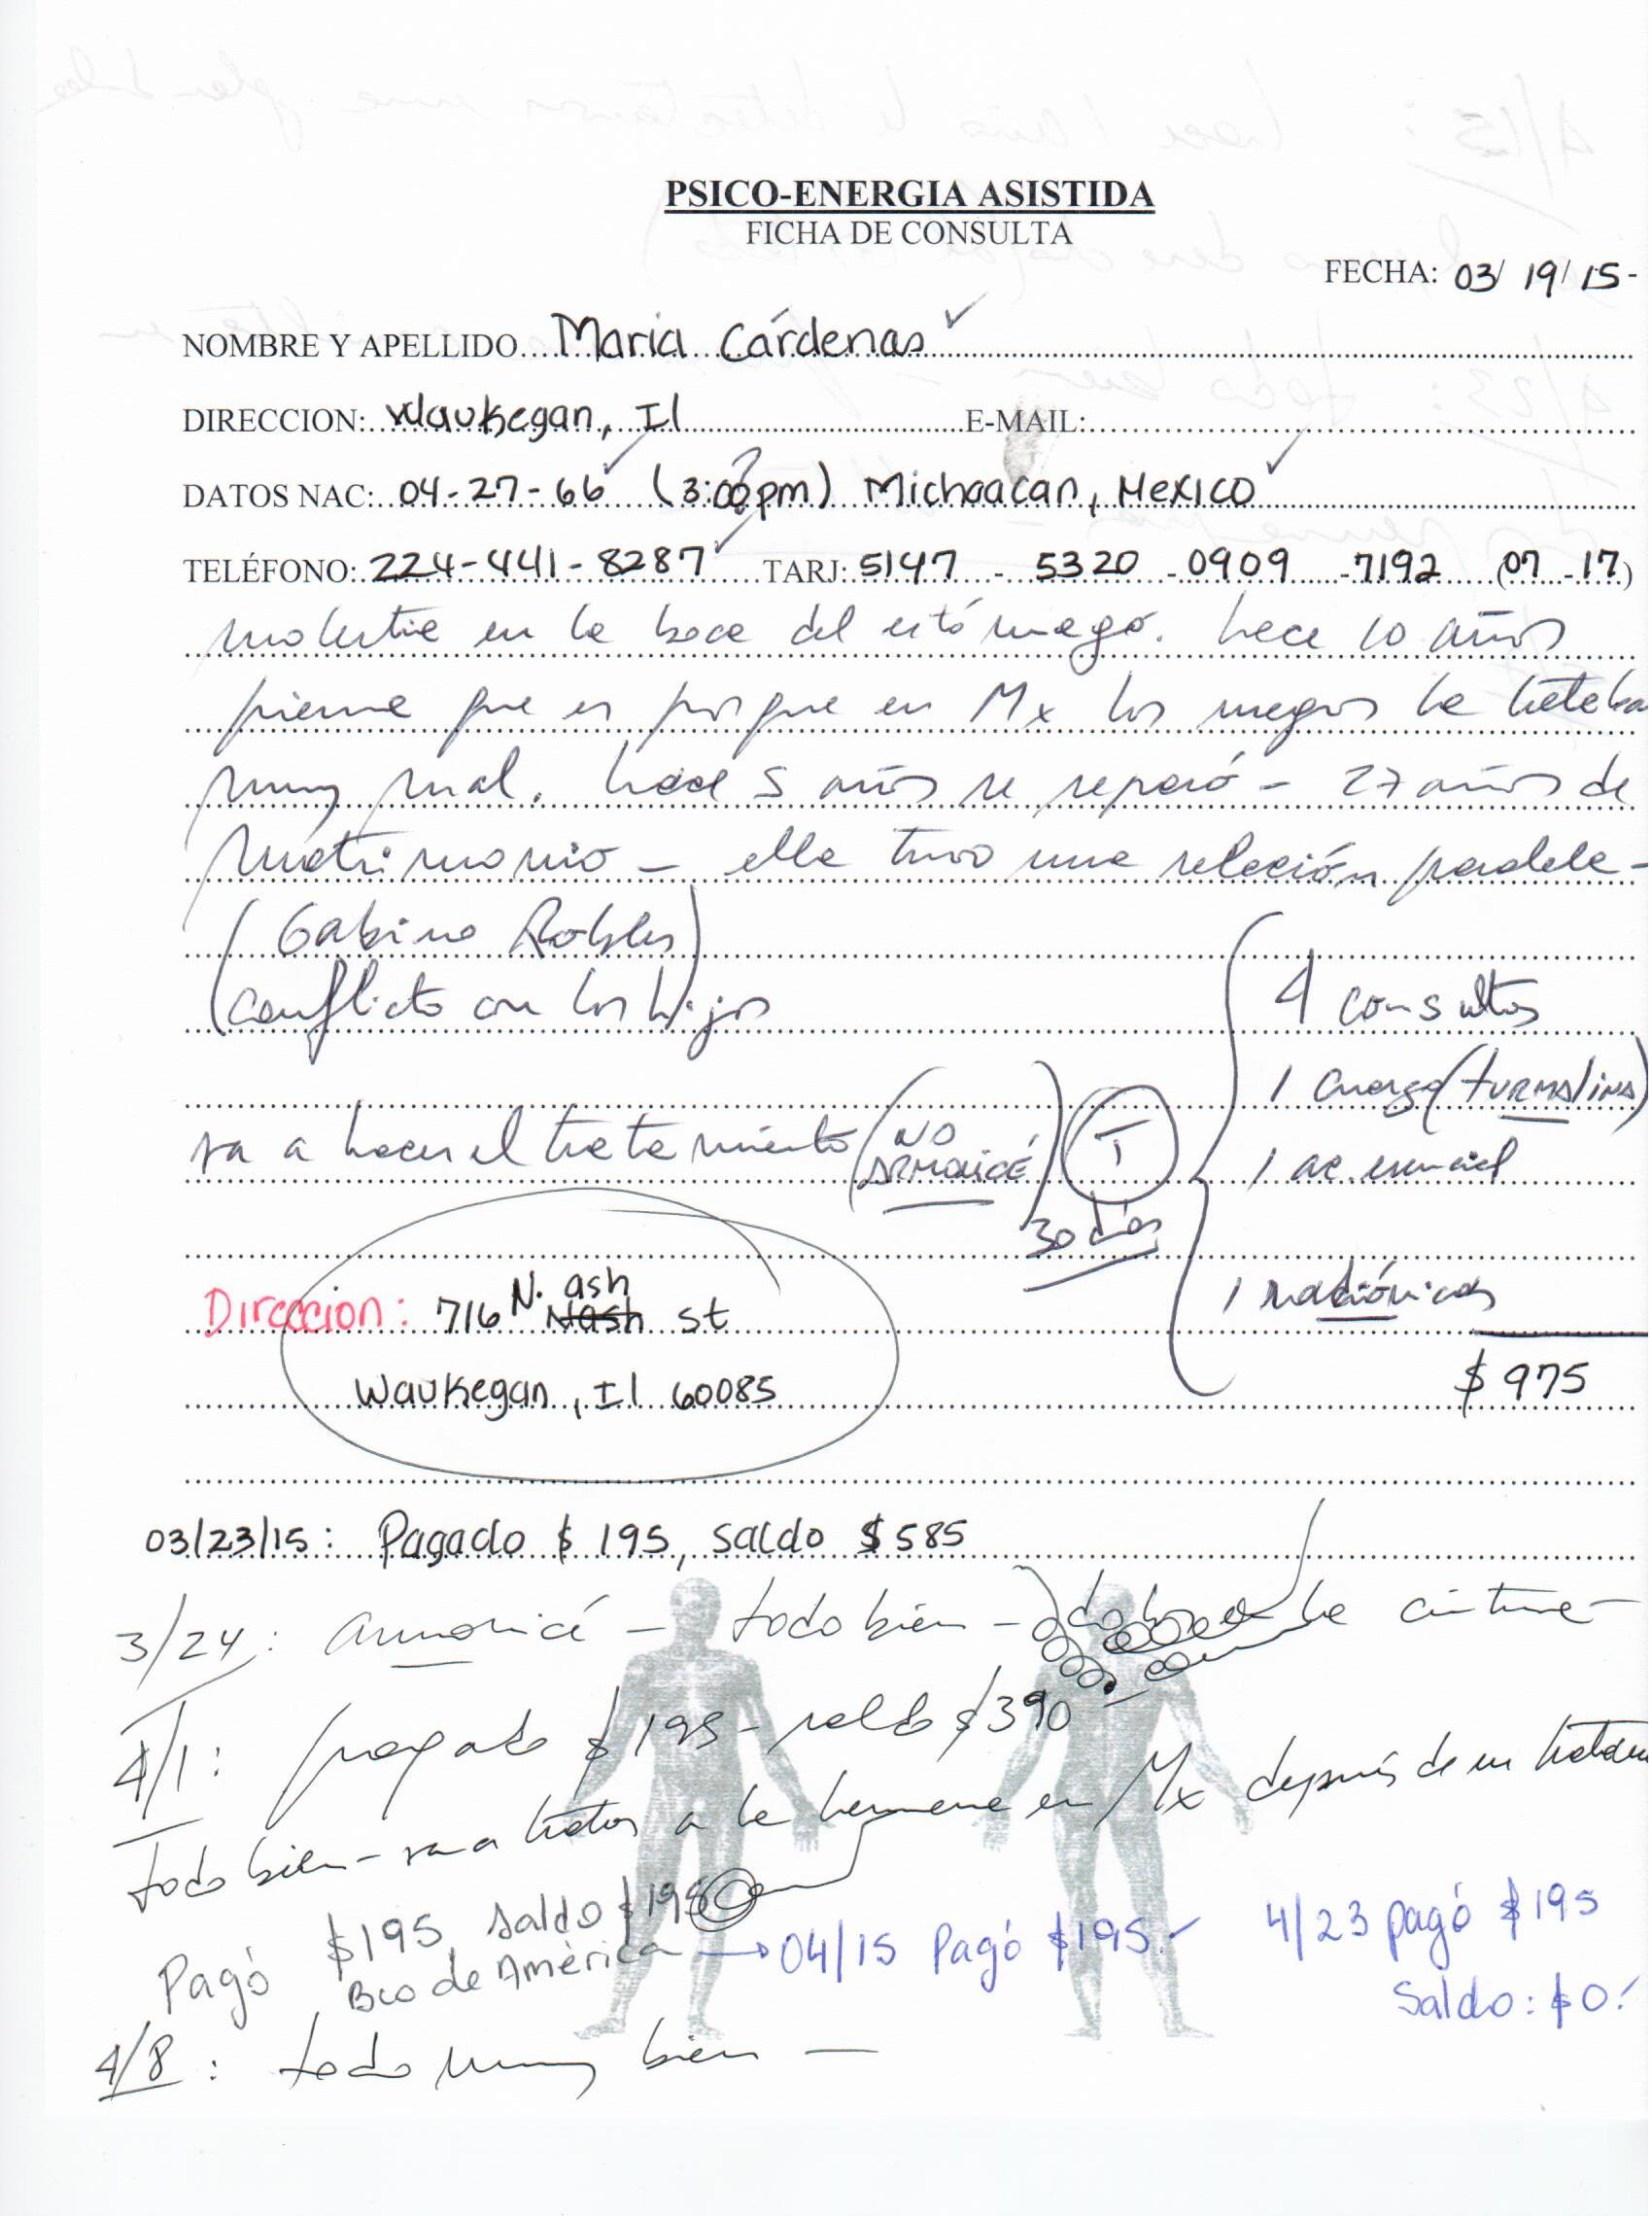 PSICO-ENERGIA ASISTIDA
FICHA DE CONSULTA
FECHA: 03/ 19/ 15-
NOMBRE Y APELLIDO.... Maria Cárdenas
DIRECCION: Waukegan, Il E-MAIL:
DATOS NAC: 04-27-66 (3:00pm) ? Michoacan, Mexico
TELÉFONO: 224-441-8287 TARJ: 5147 - 5320 - 0909 - 7192 (07 - 17)
molestia en la boca del estómago. hace 10 años
piensa que es porque en Mx los suegros la trataba
muy mal. hace 5 años se separó - 27 años de
matrimonio - ella tuvo una relación paralela -
(Gabino Robles)
(conflicto con los hijos
4 consultas
1 cuarzo (turmalina)
va a hacer el tratamiento (NO ARMONICÉ) T
1 ac. esencial
30 días
1 radiónicas
Direccion: 716 N. ash Nash st
$ 975
Waukegan, Il 60085
03/23/15: Pagado $ 195, saldo $ 585
3/24: armonicé - todo bien - la cintura -
4/1: pagado $ 195 - saldo $ 390
todo bien - va a tratar a la hermana en Mx después de su
Pagó $195 saldo $195
Bco de América → 04/15 Pagó $195.-
4/23 pagó $195
Saldo: $0.-
4/8: todo muy bien -